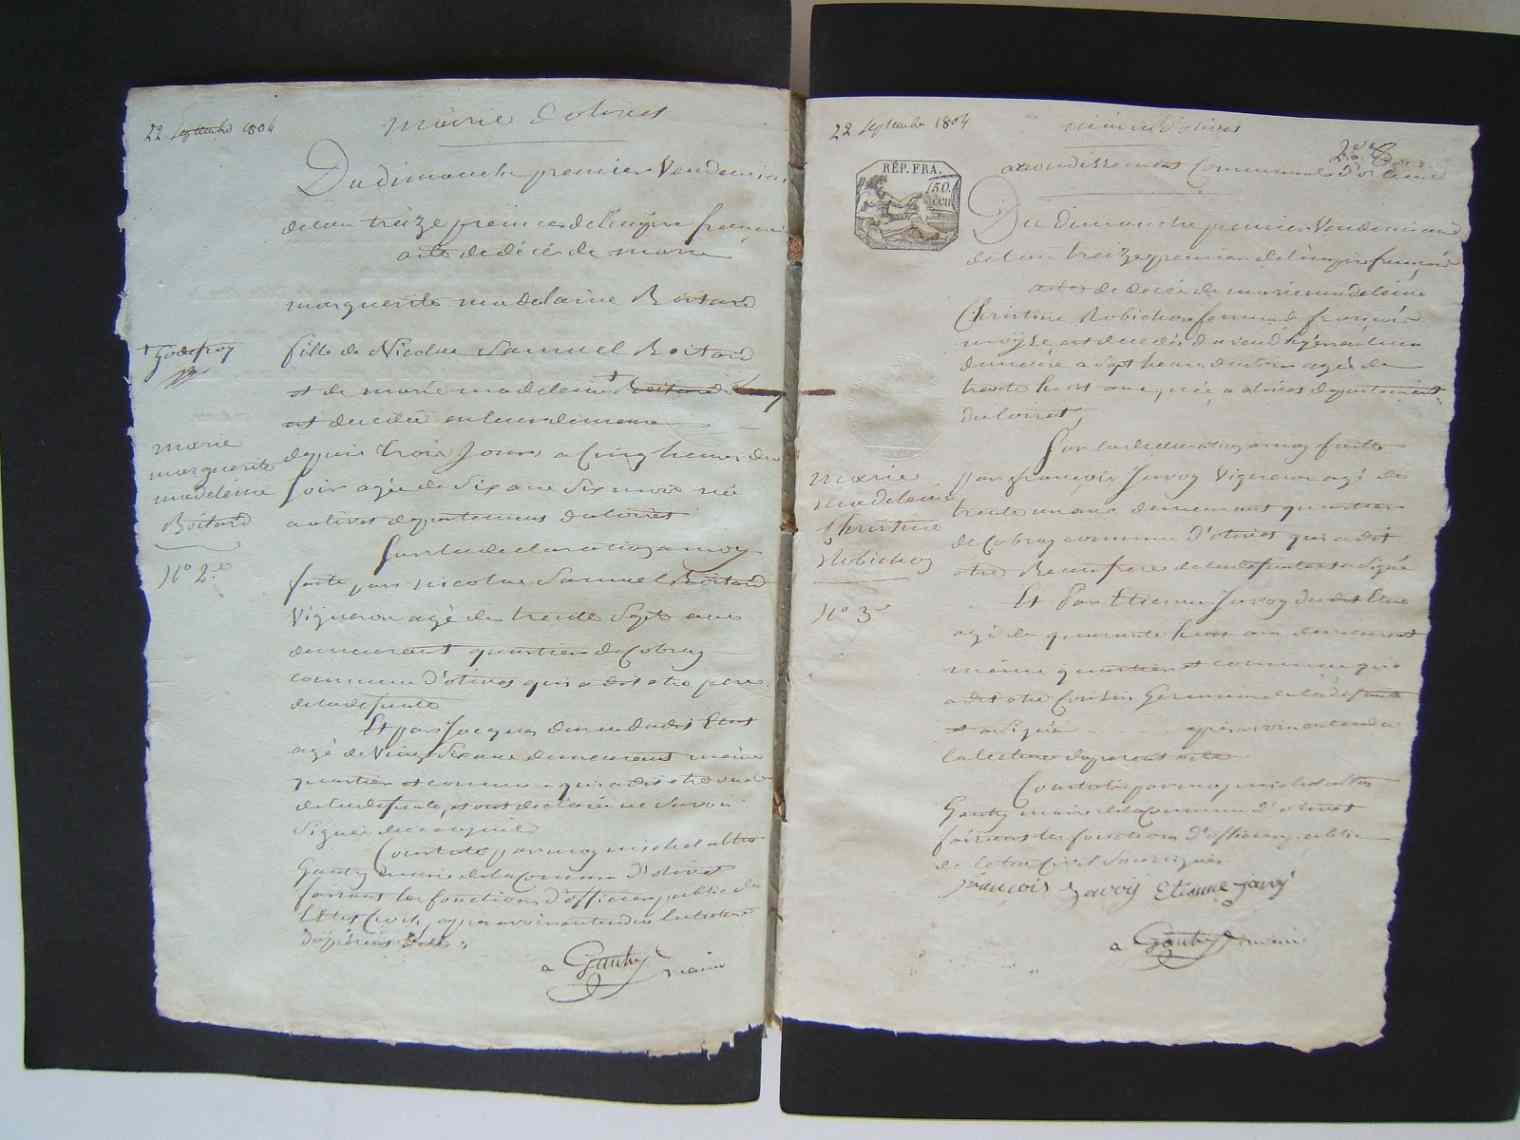 22 Septembre 1804
Mairie d'olivet
Du dimanche premier Vendemiaire
de l'an treize premier de l'empire francais
acte de décès de marie
marguerite madelaine Boitard
+ Godefroy
fille de Nicolas Samuel Boitard
et de marie madeleine + Boitard
est decedée en leur demeure
depuis trois Jours a Cinq heures du
soir agée de Six ans Six mois née
a olivet departement du loiret
marie
marguerite
madeleine
Boitard
N° 2e
Sur la declaration a moy
faite par nicolas Samuel Boitard
Vigneron agé de trente Sept ans
demeurant quartier de Cobray
commune d'olivet qui a dit etre père
de la defunte
Et par Jacques demeududit Etat
agé de Vingt Six ans demeurant même
quartier et commune qui a dit etre
de la defunte, et ont déclaré ne Savoir
Signer de ce enquis
Constaté par moy michel altin
Gauthy maire de la Commune d'olivet
faisant les fonctions d'officier public de
L'Etat Civil, apres avoir entendu la lecture
du présent acte
a Gauthy maire
22 Septembre 1804
Mairie d'olivet
arrondissement Communal d'orleans
RÉP. FRA.
50.
cen
Du dimanche premier Vendemiaire
de l'an treize premier de l'empire français
acte de décès de marie madeleine
Christine Robichon femme de françois
decedée d'hier
demeure a Sept heures du agée de
trente huit ans, née a olivet departement
du loiret,
Sur la declaration a moy faite
par françois Javoy Vigneron agé de
trente un ans demeurant quartier
de Cobray commune d'olivet qui a dit
etre Beaufrere de la defunte et a Signé
marie
madeleine
Christine
Robichon
N° 3e
Et Par Etienne Javoy dudit Etat
agé de quarante huit ans demeurant
même quartier et commune qui
a dit etre Cousin Germain de la defunte
et a signé après avoir entendu
la lecture du present acte
Constaté par moy michel altin
Gauthy maire de la Commune d'olivet
faisant les fonctions d'officier public
de L'etat Civil Soussigné
françois Javoy Etienne Javoy
a Gauthy maire